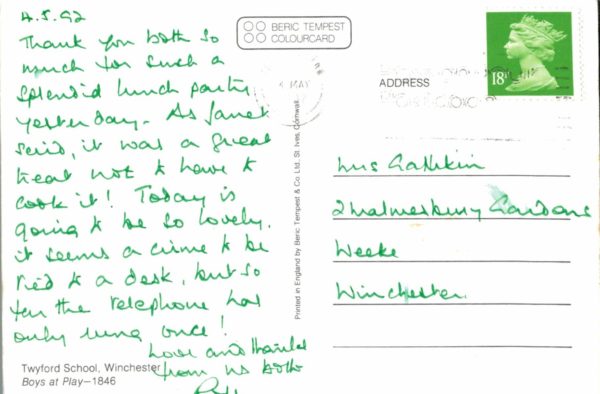 4.5.92
Thank you both so
much for such a
splendid lunch party
yesterday. As Janet
said, it was a great
treat not to have to
cook it! Today is
going to be so lovely.
it seems a crime to be
tied to a desk, but so
far the telephone has
only rung once!
Love and thanks
from us both
Twyford School, Winchester
Boys at Play—1846
BERIC TEMPEST
COLOURCARD
Printed in England by Beric Tempest & Co. Ltd. St. Ives, Cornwall.
MAY
18
ADDRESS
Mrs
2 Malmesbury Gardens
Weeke
Winchester